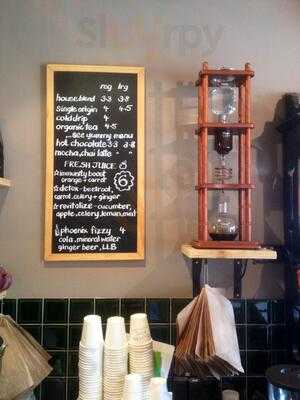 Slurpy
reg lrg
house blend 3.3 3.8
single origin 4 4.5
cold drip 4
organic tea 4.5
...see yummy menu
hot chocolate 3.3 3.8
mocha, chai latte " "
FRESH JUICE
☆ immunity boost 6
orange + carrot
☆ detox - beetroot,
carrot, celery + ginger
☆ revitalize - cucumber,
apple, celery, lemon, mint
phoenix fizzy 4
cola, mineral water
ginger beer, LLB